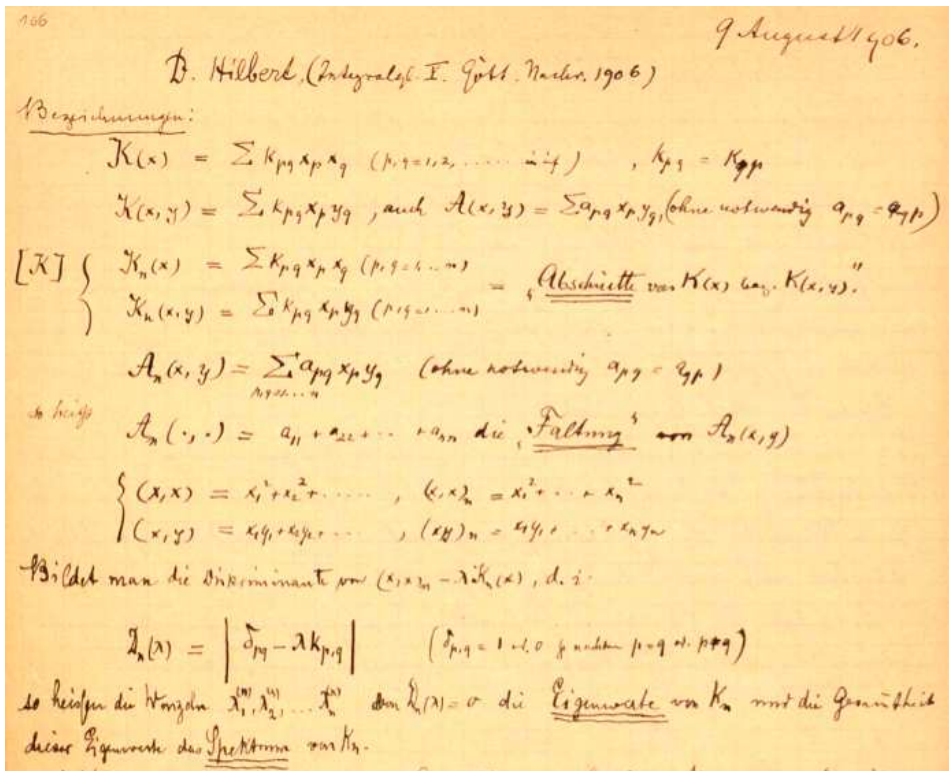 166
9 August 1906.
D. Hilbert, (Integralgl. I. Gött. Nachr. 1906)
Bezeichnungen:
K(x) = ∑ k_pq x_p x_q (p,q=1,2, ..... inf) , k_pq = k_qp
K(x,y) = ∑ k_pq x_p y_q , auch A(x,y) = ∑ a_pq x_p y_q, (ohne notwendig a_pq = a_qp)
[K] { K_n(x) = ∑ k_pq x_p x_q (p,q=1,...n)
K_n(x,y) = ∑ k_pq x_p y_q (p,q=1...n) = „Abschnitte von K(x) bez. K(x,y)."
A_n(x,y) = ∑ a_pq x_p y_q (ohne notwendig a_pq = a_qp)
p,q=1,...n
so heißt A_n(·,·) = a_11 + a_22 + ·· + a_nn die „Faltung" von A_n(x,y)
{ (x,x) = x_1^2 + x_2^2 + ..... , (x,x)_n = x_1^2 + ·· + x_n^2
(x,y) = x_1y_1 + x_2y_2 + .... , (xy)_n = x_1y_1 + ... + x_ny_n
Bildet man die Diskriminante von (x,x)_n − λK_n(x), d. i.
D_n(λ) = | δ_pq − λk_p,q | (δ_p,q = 1 od. 0 je nachdem p=q od. p≠q)
so heißen die Wurzeln λ_1^(n), λ_2^(n), ... λ_n^(n) von D_n(λ)=0 die Eigenwerte von K_n und die Gesamtheit
dieser Eigenwerte das Spektrum von K_n.